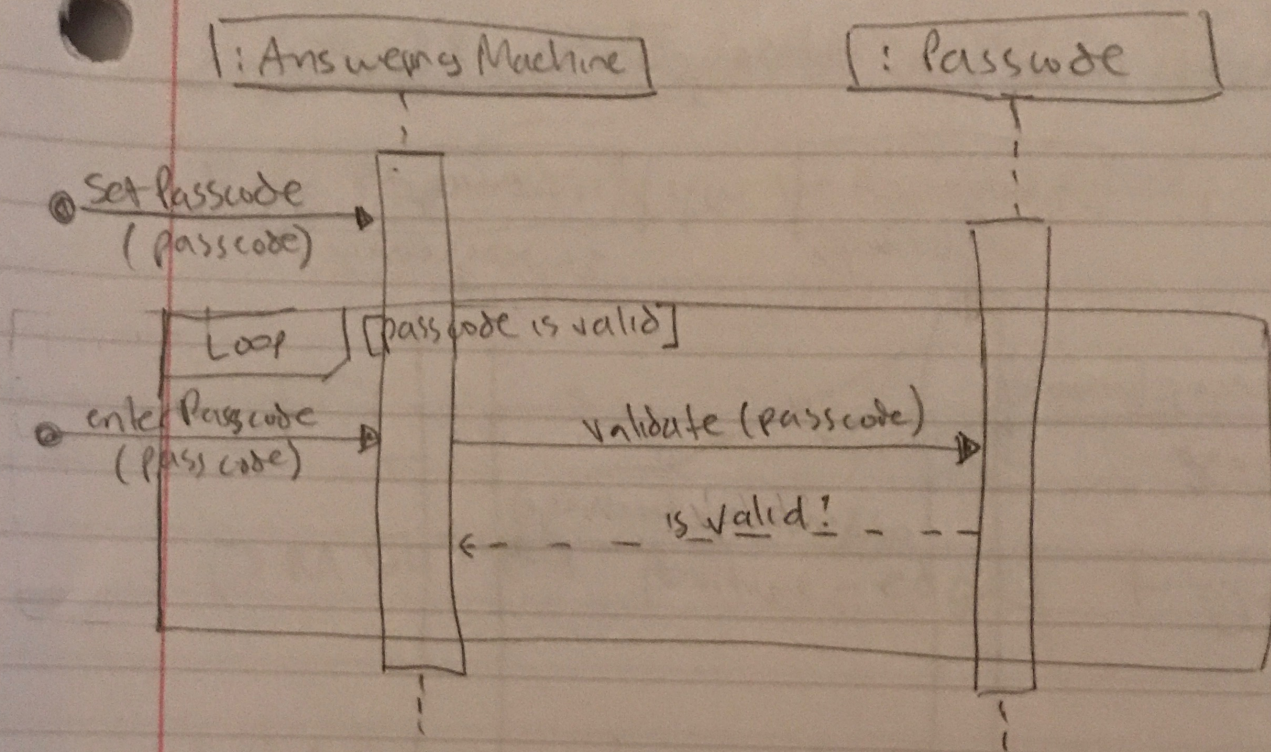 : Answering Machine
: Passcode
Set Passcode
(passcode)
Loop
[passcode is valid]
enter Passcode
(passcode)
validate (passcode)
is valid?